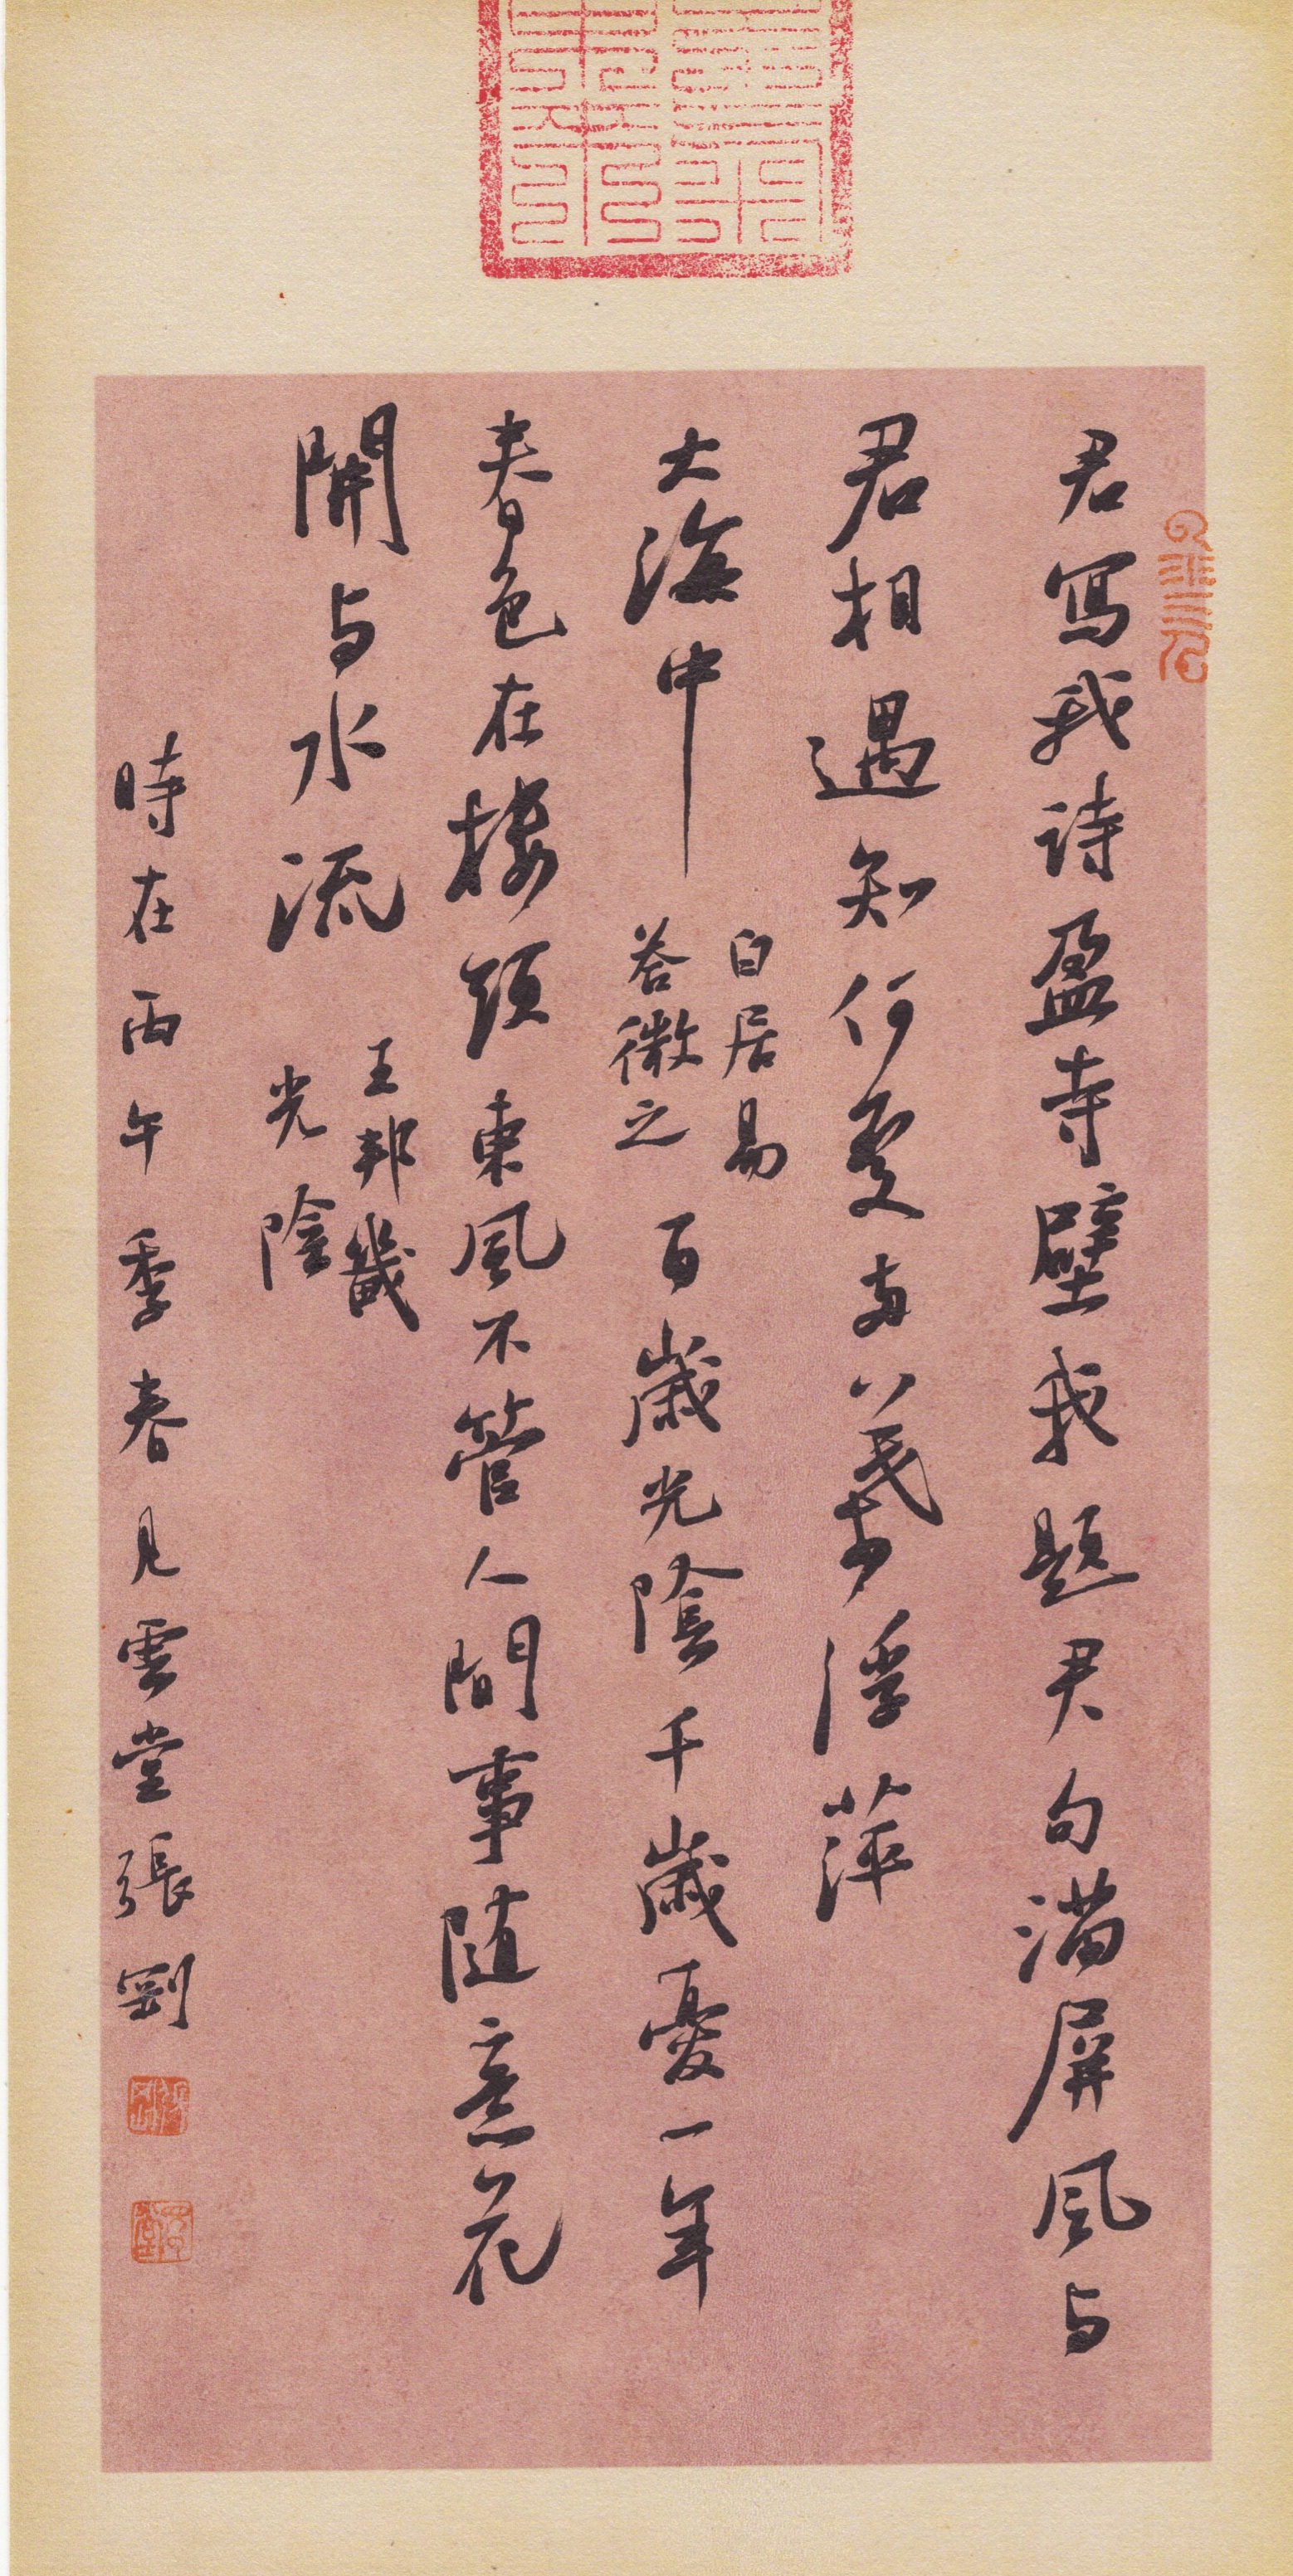 君寫我詩盈寺壁我題君句滿屏風与
君相遇知何處兩葉浮萍
大海中
白居易
答微之
百歲光陰千歲憂一年
春色在樓頭東風不管人間事随意花
開与水流
王邦畿
光陰
時在丙午季春月雲堂張剛